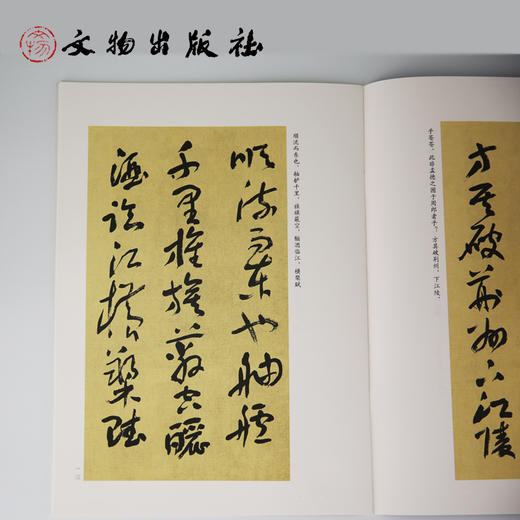 文物出版社
乎苍苍，此非孟德之困于周郎者乎？方其破荆州，下江陵，
方其破荊州下江陵
顺流而东也，舳舻千里，旌旗蔽空，酾酒临江，横槊赋
順流而東也舳艫
千里旌旗蔽空釃
酒臨江橫槊賦